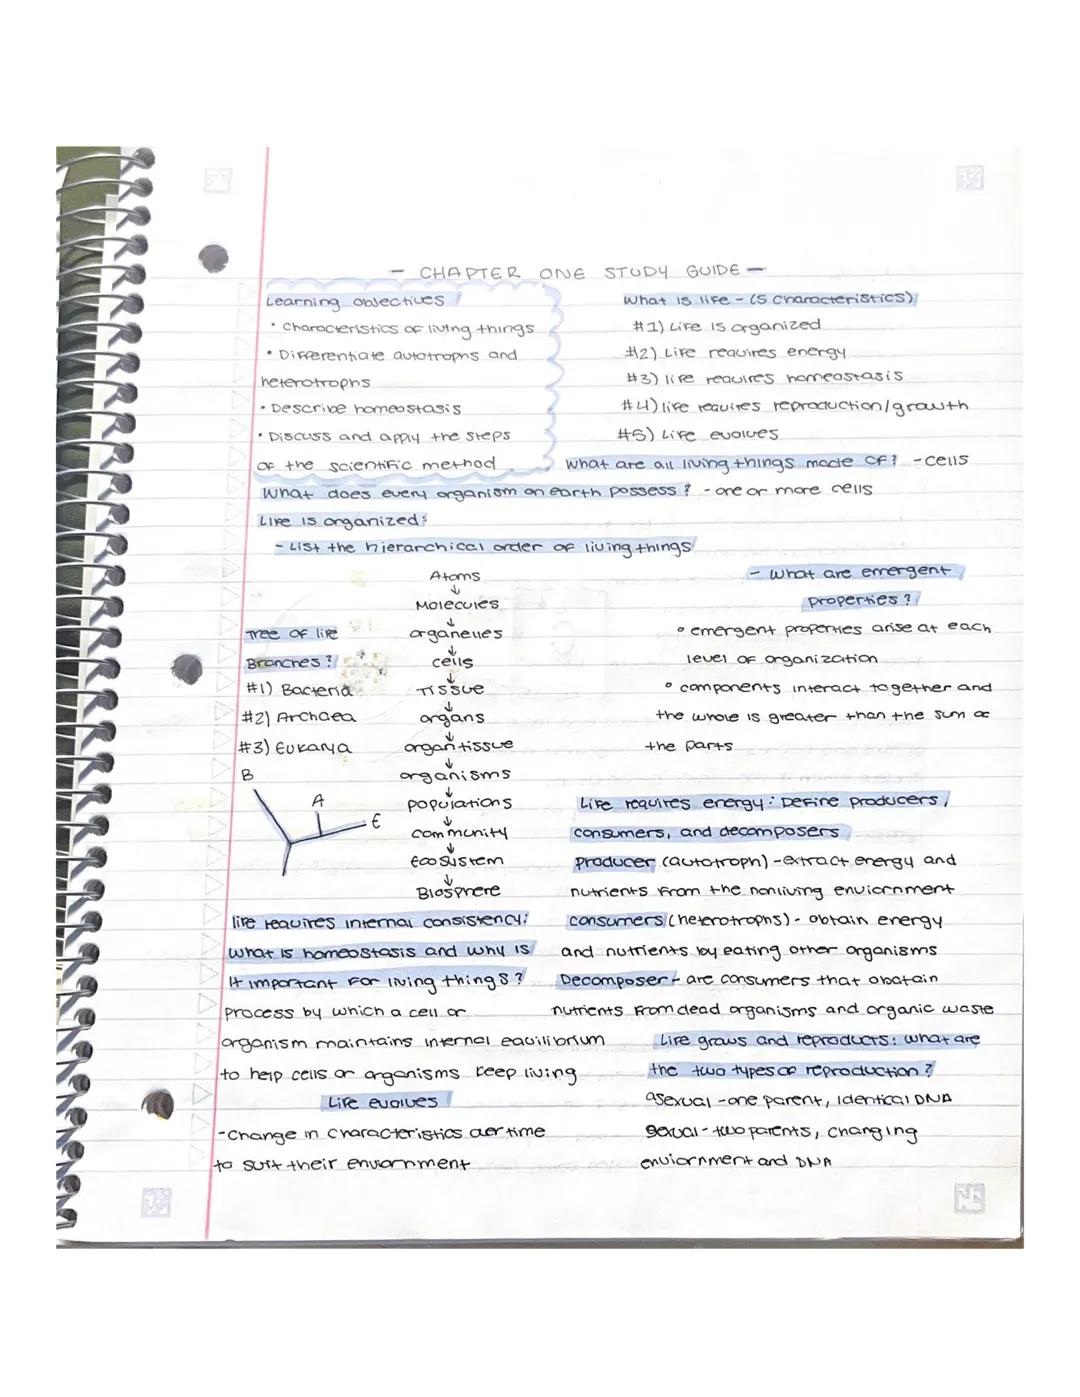 - CHAPTER ONE STUDY GUIDE -
Learning objectives
• Characteristics of living things
• Differentiate autotrophs and
heterotrophs
• Describe homeostasis
• Discuss and apply the steps
of the scientific method
What is life - (5 characteristics)
#1) Life is organized
#2) Life requires energy
#3) life requires homeostasis
#4) life requires reproduction/growth
#5) Life evolves
What are all living things made of? - cells
What does every organism on earth possess? - one or more cells
Life is organized:
- List the hierarchical order of living things
Atoms
↓
Molecules
↓
organelles
↓
cells
↓
Tissue
↓
organs
↓
organ tissue
↓
organisms
↓
populations
↓
community
↓
Ecosystem
↓
Biosphere
- What are emergent
properties?
• emergent properties arise at each
level of organization
• components interact together and
the whole is greater than the sum of
the parts
Tree of life
Branches?
#1) Bacteria
#2) Archaea
#3) Eukarya
B
A
E
Life requires energy: Define producers,
consumers, and decomposers
producer (autotroph) - extract energy and
nutrients from the nonliving enviornment
consumers (heterotrophs) - obtain energy
and nutrients by eating other organisms
Decomposer - are consumers that obatain
nutrients from dead organisms and organic waste
life requires internal consistency:
What is homeostasis and why is
it important for living things?
process by which a cell or
organism maintains internal equilibrium
to help cells or organisms keep living
Life evolves
- change in characteristics over time
to suit their enviornment
Life grows and reproducts: what are
the two types of reproduction?
asexual - one parent, identical DNA
sexual - two parents, changing
enviornment and DNA